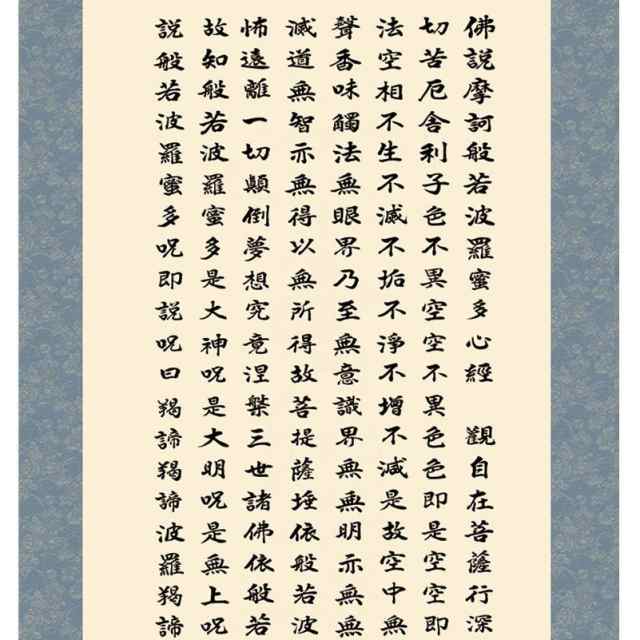 佛説摩訶般若波羅蜜多心經　觀自在菩薩行深
切苦厄舍利子色不異空空不異色色即是空空即
法空相不生不滅不垢不淨不增不減是故空中無
聲香味觸法無眼界乃至無意識界無無明亦無無
滅道無智亦無得以無所得故菩提薩埵依般若波
怖遠離一切顛倒夢想究竟涅槃三世諸佛依般若
故知般若波羅蜜多是大神呪是大明呪是無上呪
説般若波羅蜜多呪即説呪曰羯諦羯諦波羅羯諦